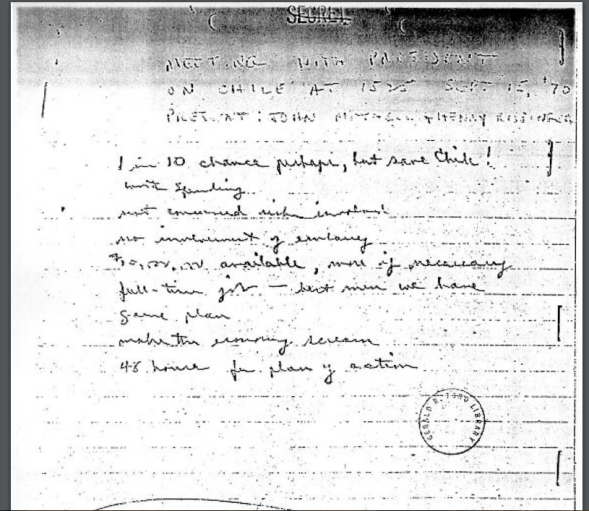 SECRET
MEETING WITH PRESIDENT
ON CHILE AT 1525 SEPT 15, '70
PRESENT: JOHN MITCHELL + HENRY KISSINGER
1 in 10 chance perhaps, but save Chile!
worth spending
not concerned risks involved
no involvement of embassy
$10,000,000 available, more if necessary
full-time job — best men we have
game plan
make the economy scream
48 hours for plan of action
GERALD R. FORD LIBRARY